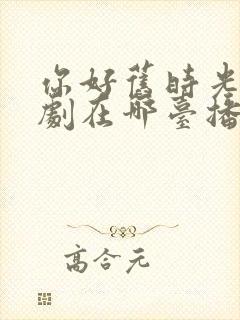 你好舊時光
劇在哪臺播
高合元